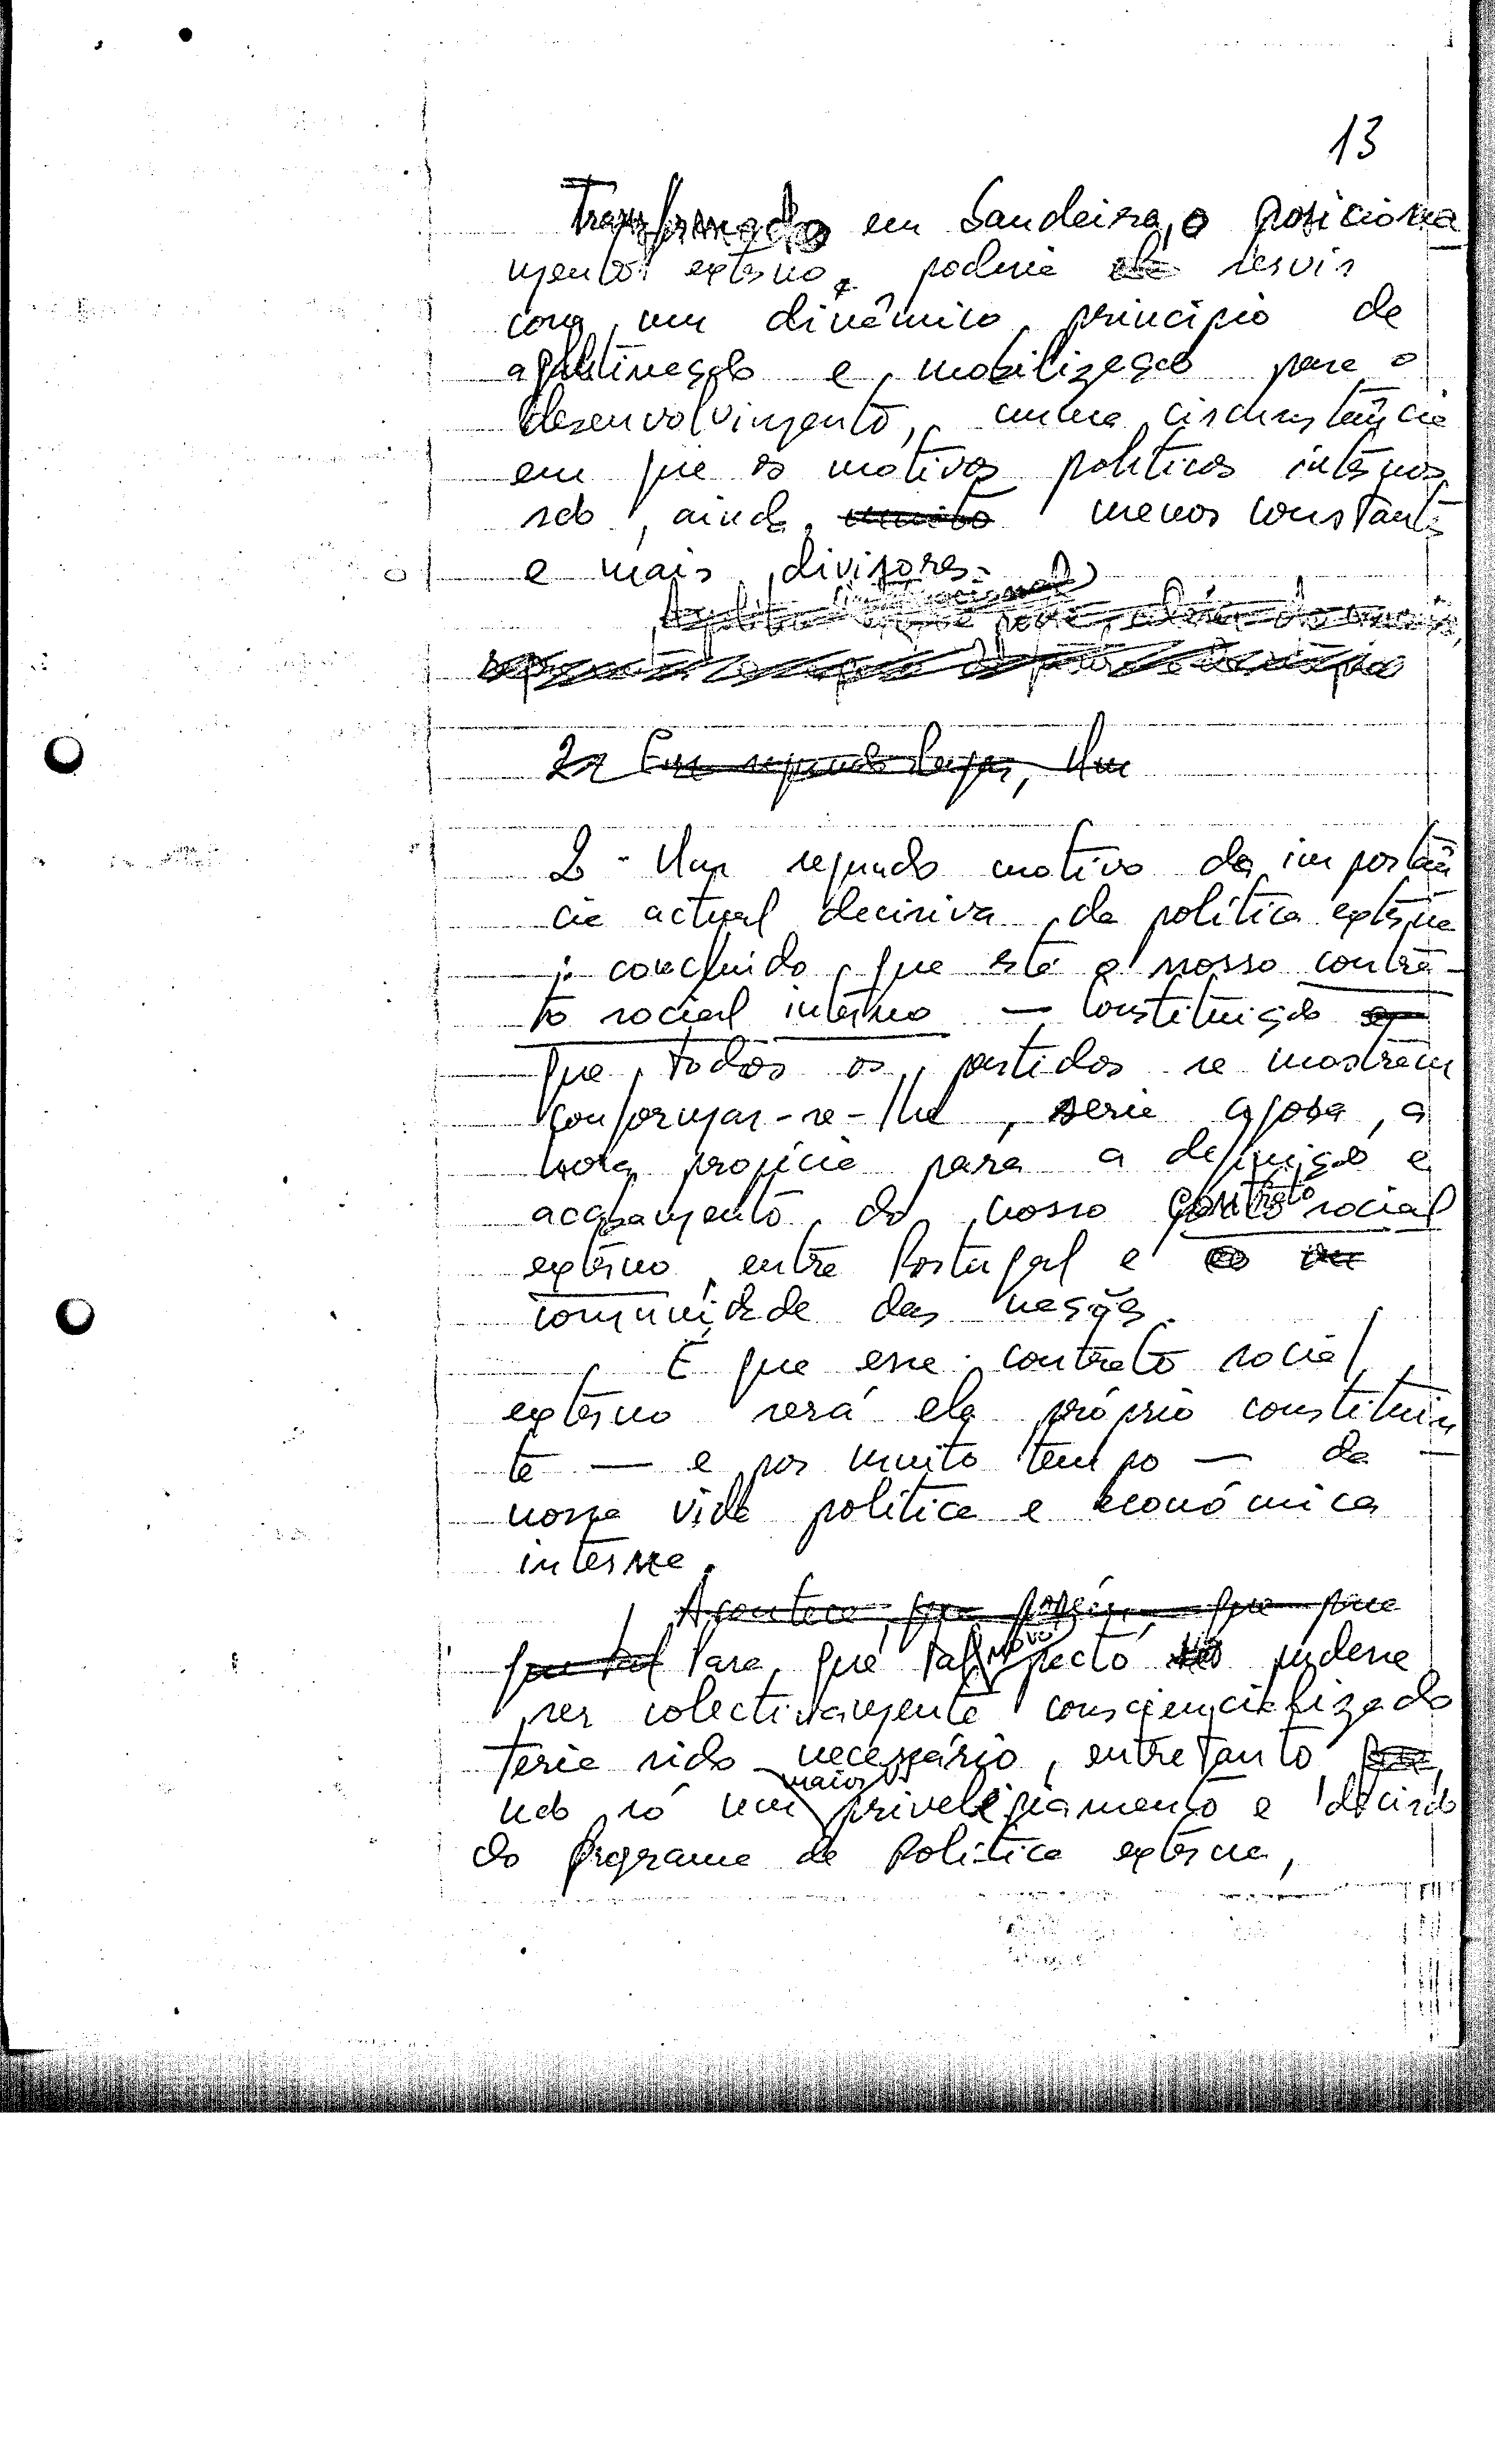 13
Transformado em bandeira, o posiciona
mento externo, poderia servir
como um dinâmico princípio de
aglutinação e mobilização para o
desenvolvimento, numa circunstância
em que os motivos políticos internos
são, ainda, muito menos constantes
e mais divisores.
(institucional)
2 Em segundo lugar, Um
2 - Um segundo motivo da importân
cia actual decisiva da política externa
: concluído que está o nosso contra-
to social interno — Constituição
que todos os partidos se mostram
conformar-se-lhe, seria agora, a
hora propícia para a definição e
acabamento do nosso contrato social
externo entre Portugal e
comunidade das nações.
É que esse contrato social
externo será ele próprio constituin
te — e por muito tempo — da
nossa vida política e económica
interna.
Acontece, que porém, que para
que tal Para que tal novo pacto pudesse
ser colectivamente consciencializado
teria sido necessário, entretanto,
não só um maior privelégiamento e decisão
do programa de política externa,